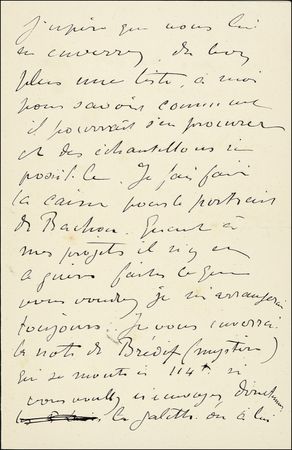 J'espère que vous lui
en enverrez. De
plus une liste, à moi
pour savoir comment
il pourrait s'en procurer
et des échantillons si
possible. Je fais faire
la caisse pour le portrait
de Bachon. Quant à
mes projets il n'y en
a guère faites ce que
vous voudrez je m'arrangerai
toujours. Je vous enverrai
la note de Brédif (mystère)
qui se monte à 114f si
vous voulez m'envoyer directement
la galette ou à lui